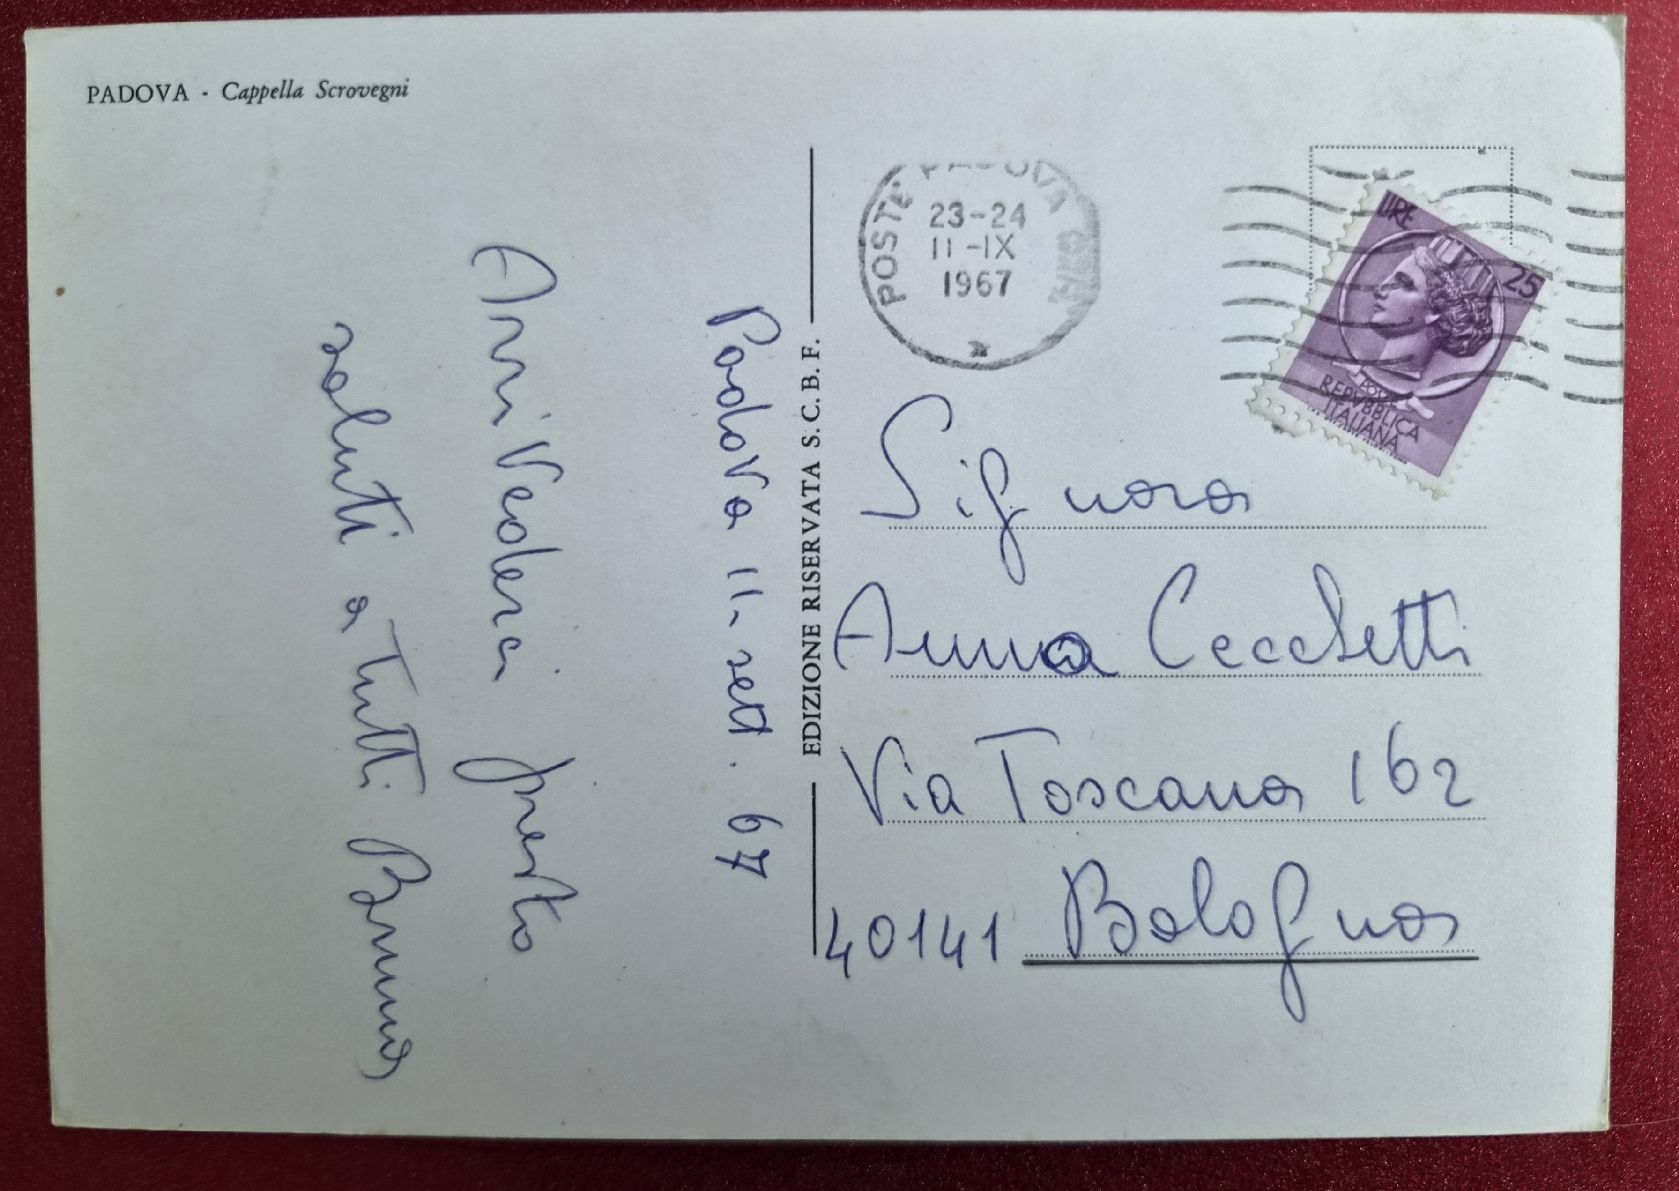 PADOVA - Cappella Scrovegni
Padova 11. sett. 67
Arrivederci presto
saluti a tutti Bruno
EDIZIONE RISERVATA S. C. B. F.
POSTE PADOVA
23-24
11-IX
1967
LIRE 25
POSTE
REPVBBLICA
ITALIANA
Signora
Anna Cecchetti
Via Toscana 162
40141 Bologna